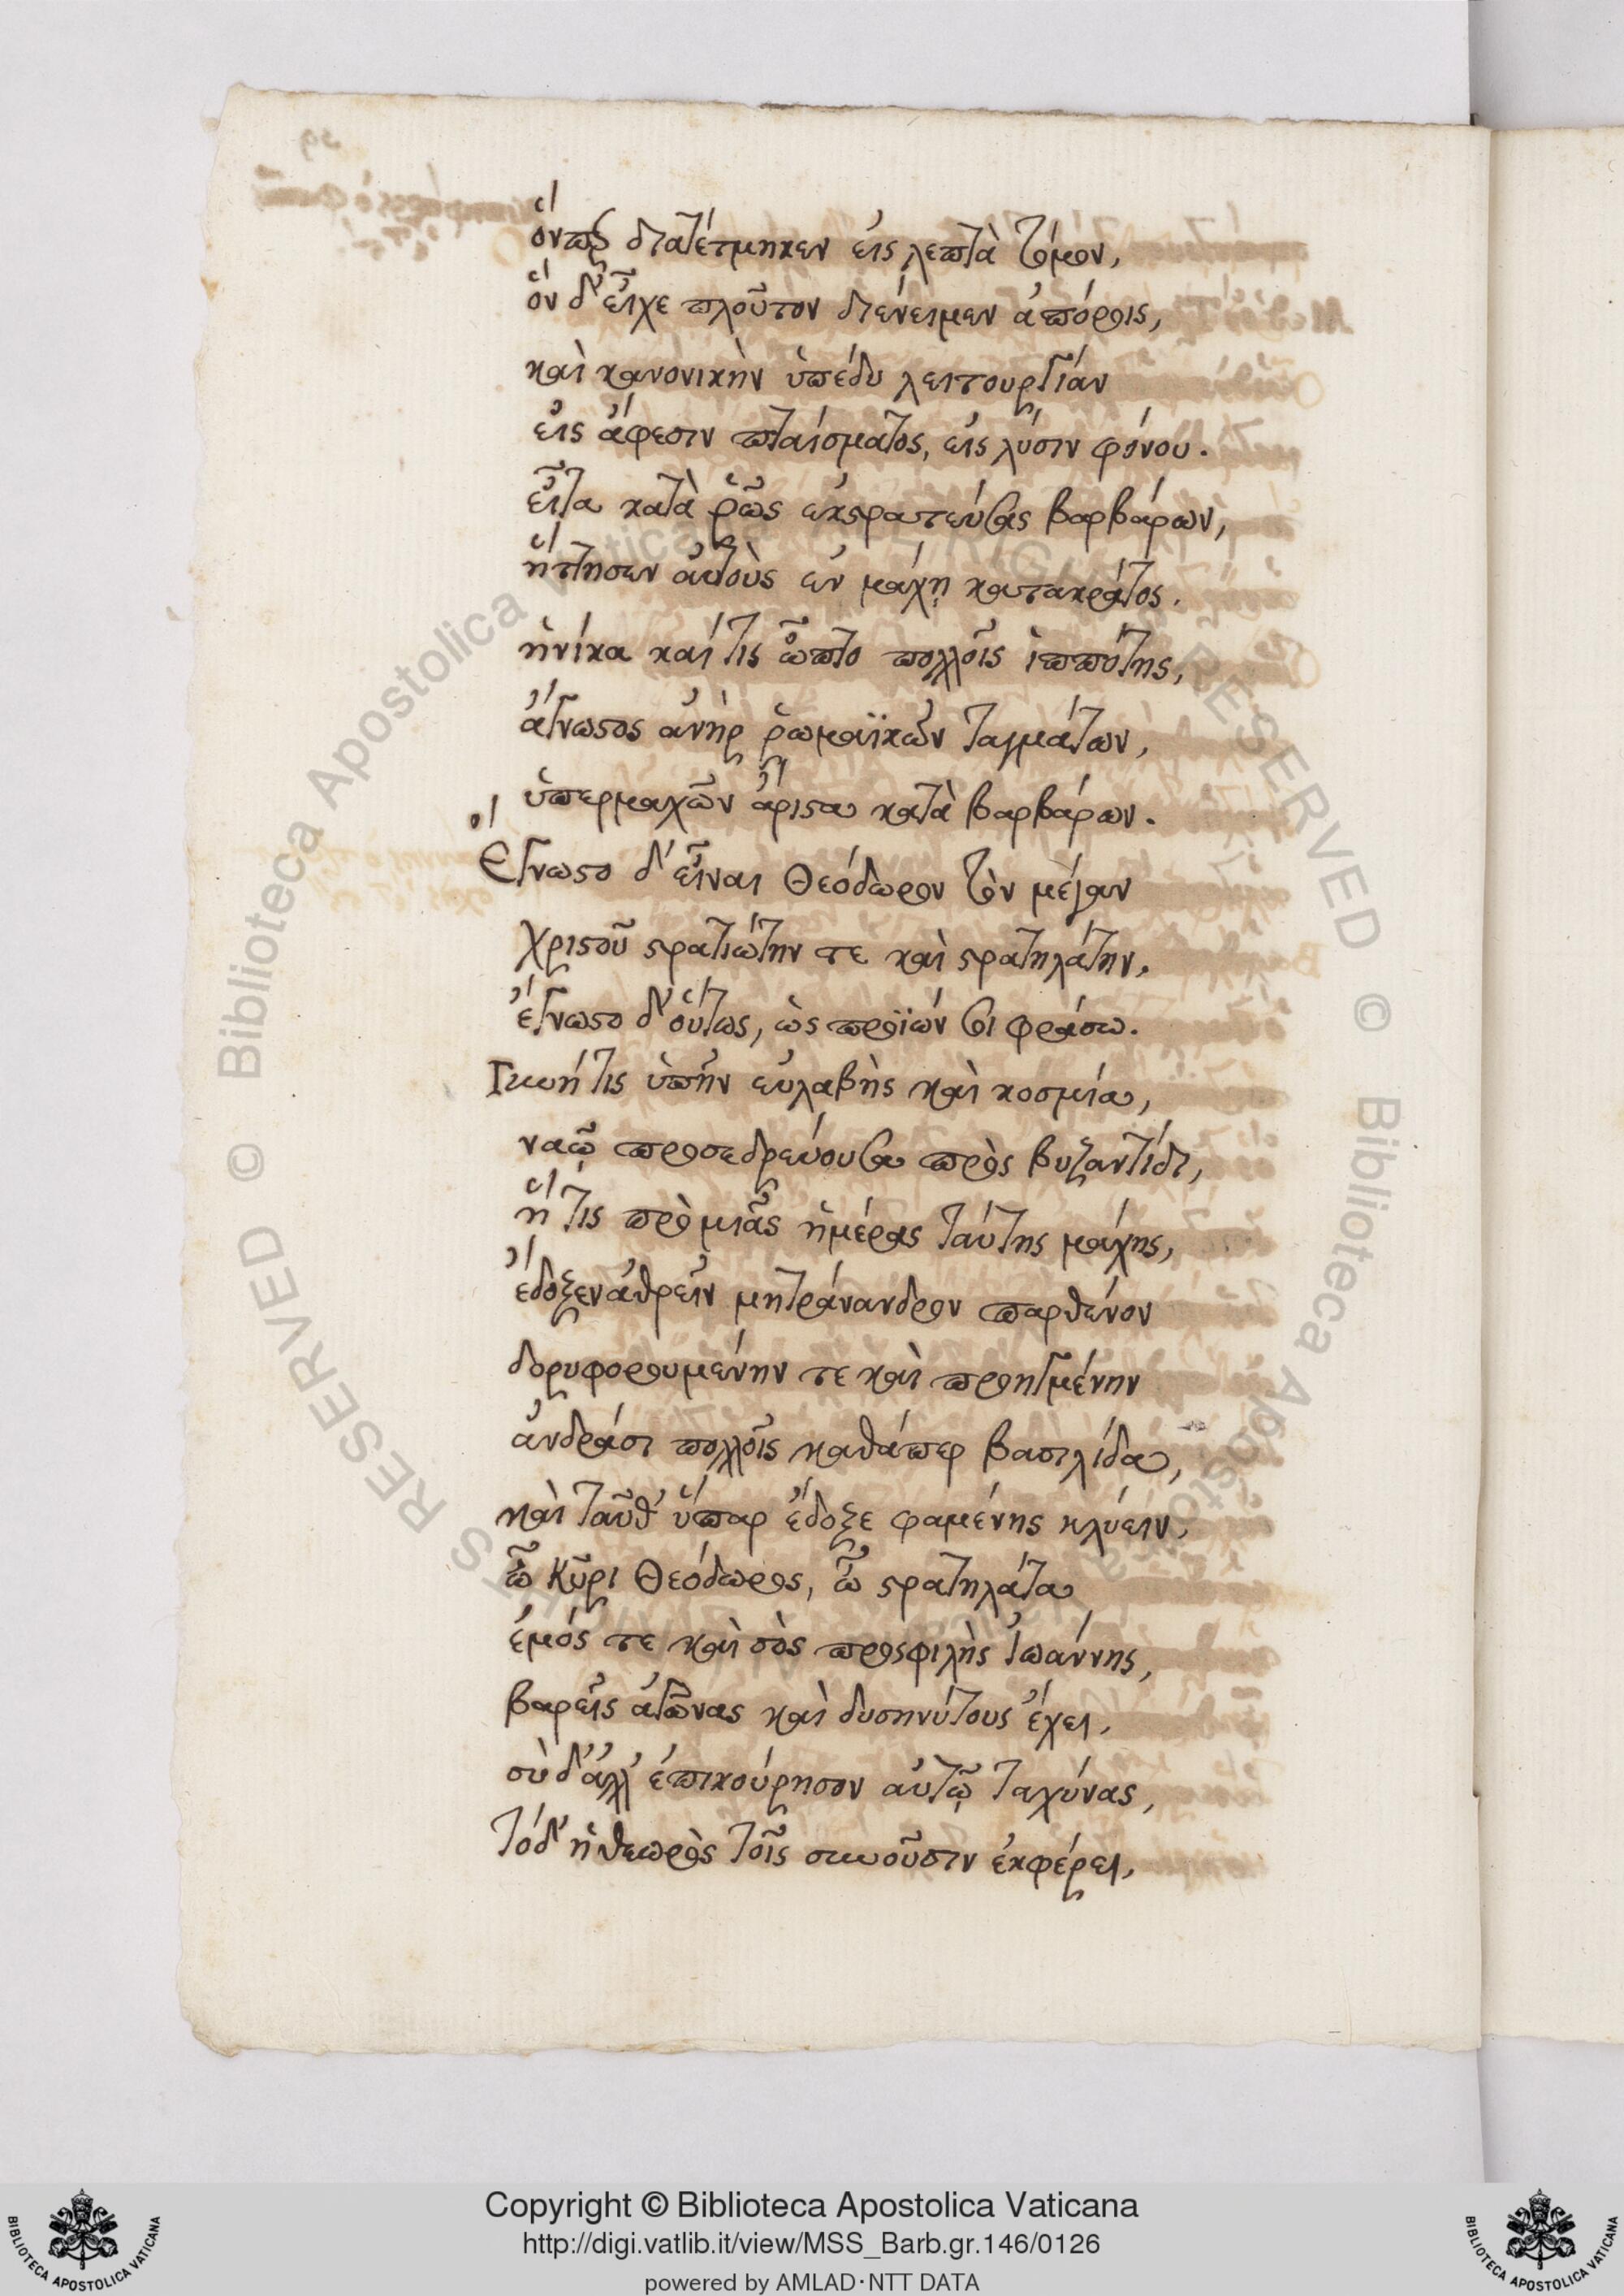 ὅνπερ διατέτμηκεν εἰς λεπτὰ τόμον,
ὃν δ' εἶχε πλοῦτον διένειμεν ἀπόροις,
καὶ κανονικὴν ὑπέδυ λειτουργίαν
εἰς ἄφεσιν πταίσματος, εἰς λύσιν φόνου.
εἶτα κατὰ ῥῶς ἐκστρατεύσας βαρβάρων,
ἥττησεν αὐτοὺς ἐν μάχῃ κατακράτος.
ἡνίκα καί τις ὦπτο πολλοῖς ἱππότης,
ἄγνωστος ἀνὴρ ῥωμαϊκῶν ταγμάτων,
ὑπερμαχῶν ἄριστα κατὰ βαρβάρων.
Ἔγνωστο δ' εἶναι Θεόδωρον τὸν μέγαν
χριστοῦ στρατιώτην τε καὶ στρατηλάτην.
ἔγνωστο δ' οὕτως, ὡς προϊών σοι φράσω.
Γυνή τις ὑπῆν εὐλαβὴς καὶ κοσμία,
ναῷ προσεδρεύουσα πρὸς βυζαντίδι,
ἥ τις πρὸ μιᾶς ἡμέρας ταύτης μάχης,
ἔδοξεν ἀθρεῖν μητράνανδρον παρθένον
δορυφορουμένην τε καὶ προηγμένην
ἀνδράσι πολλοῖς καθάπερ βασιλίδα,
καὶ ταῦθ' ὕπαρ ἔδοξε φαμένης κλύειν,
ὦ Κῦρι Θεόδωρος, ὦ στρατηλάτα
ἐμός τε καὶ σὸς προσφιλὴς Ἰωάννης,
βαρεῖς ἀγῶνας καὶ δυσηνύτους ἔχει,
σὺ δ' ἀλλ' ἐπικούρησον αὐτῷ ταχύνας,
τόδ' ἡ θεωρὸς τοῖς συνοῦσιν ἐκφέρει,
Copyright © Biblioteca Apostolica Vaticana
http://digi.vatlib.it/view/MSS_Barb.gr.146/0126
powered by AMLAD·NTT DATA